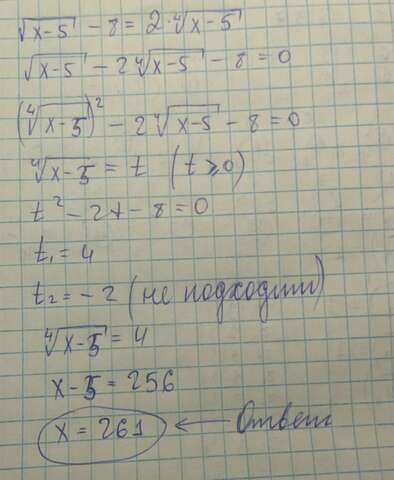 √x-5 - 8 = 2·∜x-5
√x-5 - 2∜x-5 - 8 = 0
(∜x-5)² - 2∜x-5 - 8 = 0
∜x-5 = t (t ⩾ 0)
t² - 2t - 8 = 0
t₁ = 4
t₂ = - 2 (не подходит)
∜x-5 = 4
x - 5 = 256
x = 261 ← Ответ